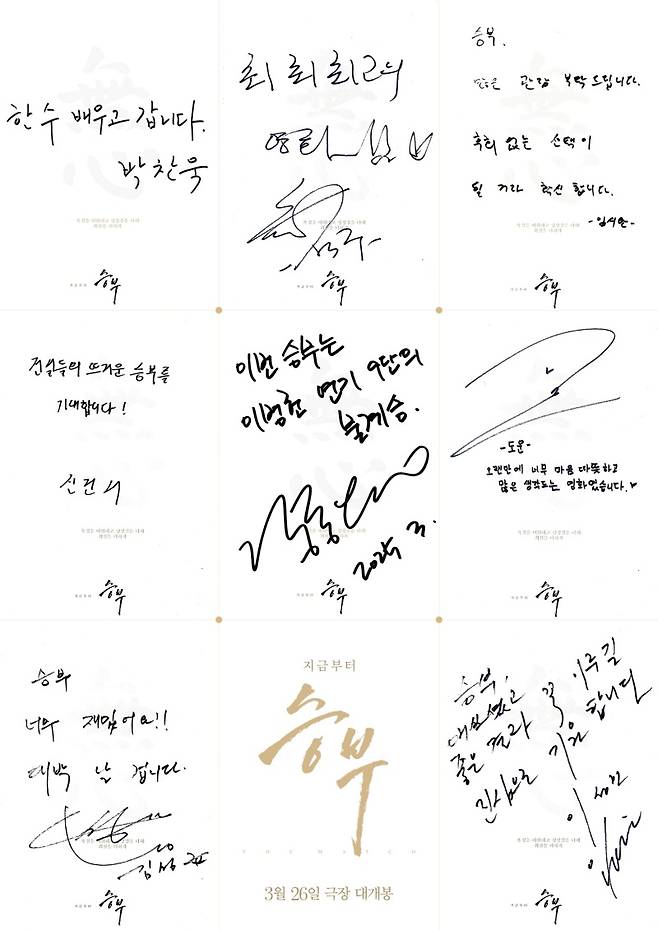 한 수 배우고 갑니다.
박찬욱
지금부터
승부
최 최 최고의
영화
지금부터
승부
승부.
많은 관람 부탁드립니다.
후회 없는 선택이
될 거라 확신합니다.
-임시완-
지금부터
승부
전설들의 뜨거운 승부를
기대합니다!
지금부터
승부
이번 승부는
이병헌 연기 9단의
불계승.
2025. 3.
지금부터
승부
-도운-
오랜만에 너무 마음 따뜻하고
많은 생각드는 영화였습니다.
지금부터
승부
승부
너무 재밌어요!!
대박 날 겁니다.
김성
지금부터
승부
지금부터
승부
THE MATCH
3월 26일 극장 대개봉
승부,
좋은 결과 꼭 이루길
진심으로 기원 합니다
지금부터
승부